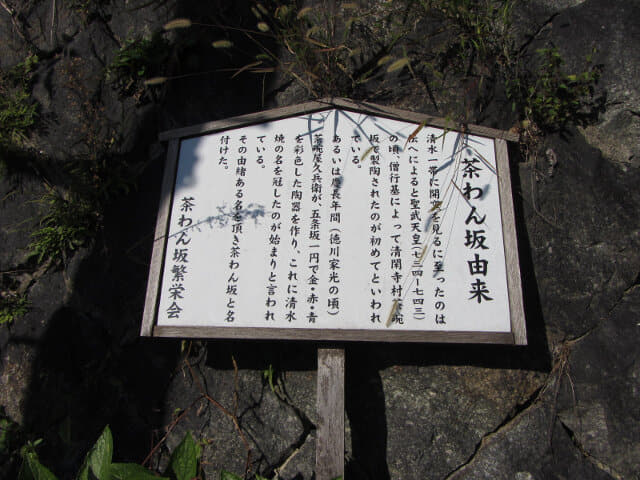 茶わん坂由来
清水一帯に開窯を見るに至ったのは
伝へによると聖武天皇(七三四ー七四三)
の頃、僧行基によって清閑寺村茶碗
坂で製陶されたのが初めてといわれ
ている。
あるいは慶長年間(徳川家光の頃)
茶碗屋久兵衛が、五条坂一円で金・赤・青
を彩色した陶器を作り、これに清水
焼の名を冠したのが始まりと言われ
ている。
その由緒ある名を頂き茶わん坂と名
付けた。
茶わん坂繁栄会